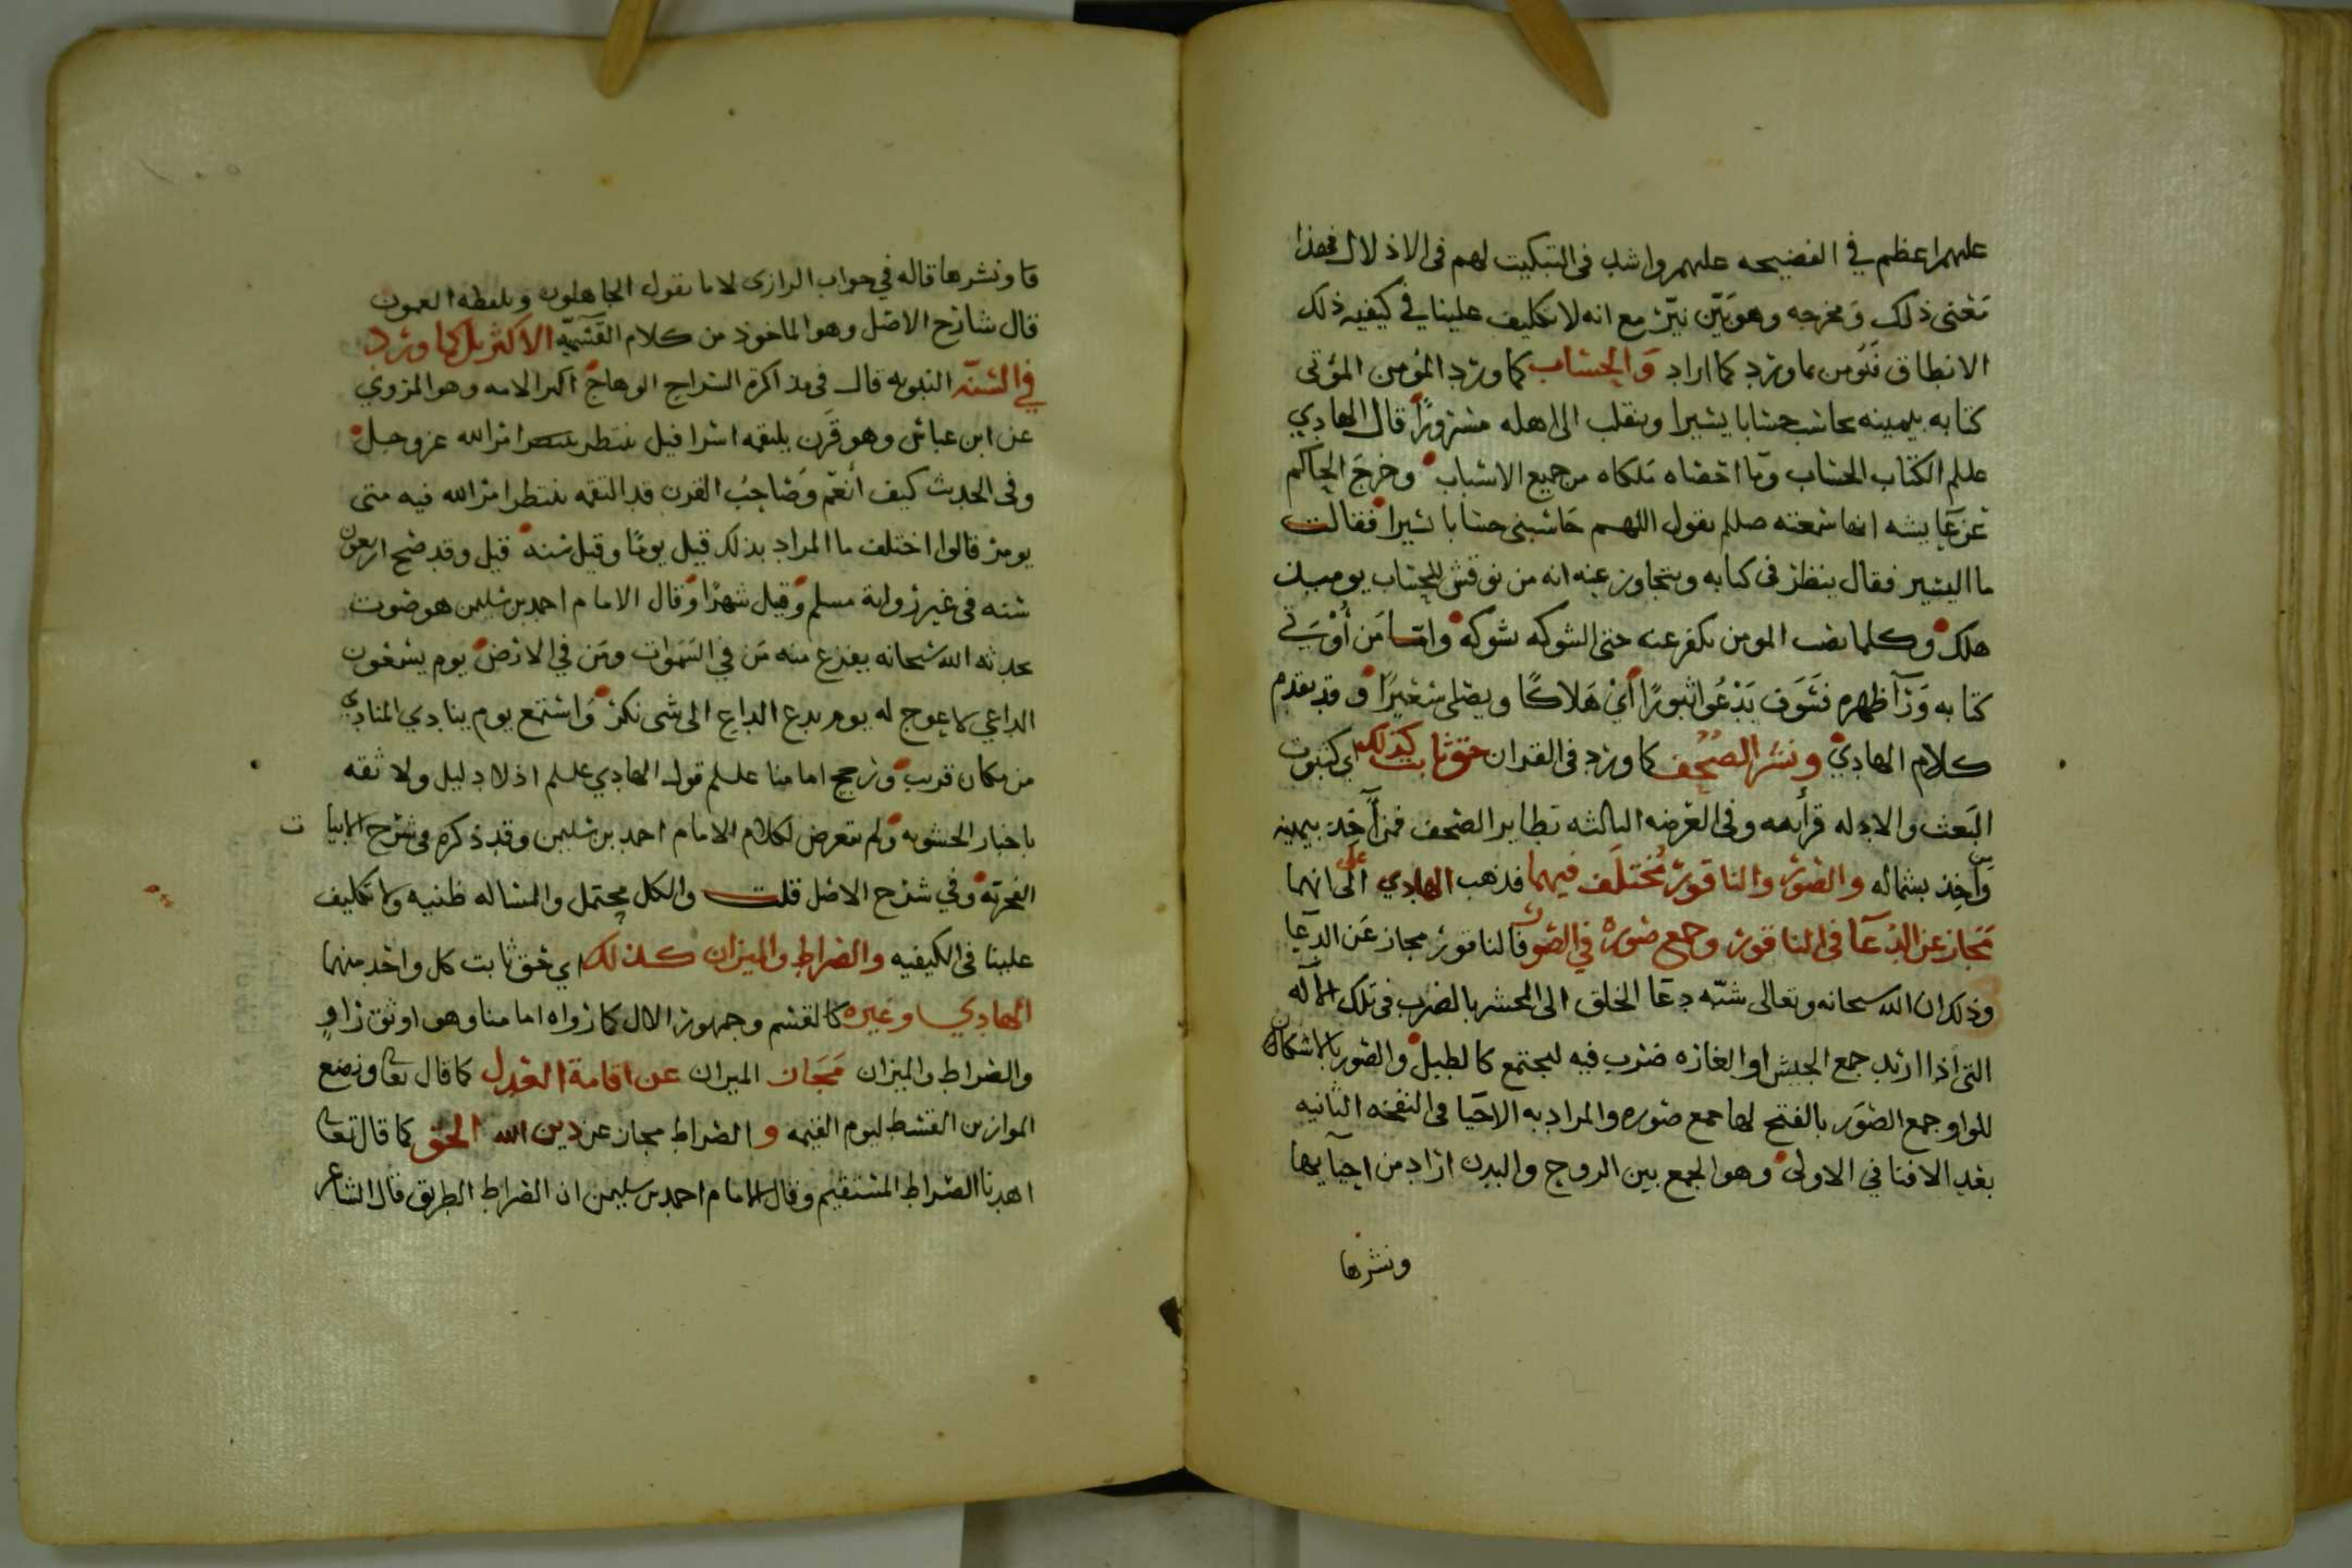 عليهم اعظم في الفضيحه عليهم واشد في التبكيت لهم في الاذلال فهذا
معنى ذلك ومخرجه وهو بيّن نيّر مع انه لا تكليف علينا في كيفيه ذلك
الانطاق فنومن بما ورد كما اراد والحساب كما ورد المومن المؤتى
كتابه بيمينه يحاسب حسابا يسيرا وينقلب الى اهله مسرورًا قال الهادي
علیلم الكتاب الحساب وما احصاه ملكاه من جميع الاسباب وخرج الحاكم
عن عايشه انها سمعته صللم يقول اللهم حاسبني حسابا يسيرا فقالت
ما اليسير فقال ينظر في كتابه ويتجاوز عنه انه من نوقش للحساب يوميذ
هلك وكلما يصب المومن يكفر عنه حتى الشوكه تشوكه واما من أوتي
كتابه ورآ ظهره فسوف يدعوا ثبورًا أي هلاكًا ويصلى سعيرًا وقد تقدم
كلام الهادي ونشر الصحف كما ورد في القران حق ثابت كذلك اي كثبوت
البعث والادله قرآنيه وفي العرضه الثالثه تطاير الصحف فمن آخذ بيمينه
ومن آخذ بشماله والصور والناقور مختلف فيهما فذهب الهادي علی الى انهما
مجاز عن الدعا في الناقور وجمع صوره في الصور فالناقور مجاز عن الدعا
وذلك ان الله سبحانه وتعالى شبّه دعا الخلق الى المحشر بالضرب في تلك الآله
التي اذا اريد جمع الجيش او الغازه ضرب فيه ليجتمع كالطبل والصور بالاسكان
للواو جمع الصور بالفتح لها جمع صوره والمراد به الاحيا في النفخه الثانيه
بعد الافنا في الاولى وهو الجمع بين الروح والبدن اراد من احيآيها
ونشرها
ما ونشرها قاله في جواب الرازي لا ما يقول الجاهلون ويلفظه العمون
قال شارح الاصل وهو الماخوذ من كلام القسميّه الاكثر بل كما ورد
في السنّه النبويه قال في مذاكرة السراج الوهاج اكثر الامه وهو المروي
عن ابن عباس وهو قرن يلتقمه اسرافيل ينتظر امر الله عز وجل
وفي الحديث كيف أنعم وصاحب القرن قد التقمه ينتظر امر الله فيه متى
يومر قالوا اختلف ما المراد بذلك قيل يومًا وقيل سنه قيل وقد صح اربعون
سنه في غير رواية مسلم وقيل شهرًا وقال الامام احمد بن سليمن هو صوت
يحدثه الله سبحانه يفزع منه من في السموات ومن في الارض يوم يسمعون
الداعي لا عوج له يوم يدع الداع الى شي نكر واستمع يوم ينادي المنادي
من مكان قريب ورجح امامنا علیلم قول الهادي علیلم اذ لا دليل ولا ثقه
باخبار الحشويه ولم يتعرض لكلام الامام احمد بن سليمن وقد ذكره في شرح الابيا ت
الفخريه وفي شرح الاصل قلت والكل محتمل والمساله ظنيه ولا تكليف
علينا في الكيفيه والصراط والميزان كذلك اي حق ثابت كل واحد منهما
الهادي وغيره كالقسم وجمهور الال كما رواه امامنا وهو اوثق راوٍ
والصراط والميزان مجاز الميزان عن اقامة العدل كما قال تعا ونضع
الموازين القسط ليوم القيمه و الصراط مجاز عن دين الله الحق كما قال تعا
اهدنا الصراط المستقيم وقال الامام احمد بن سليمن ان الصراط الطريق قال الشاعر